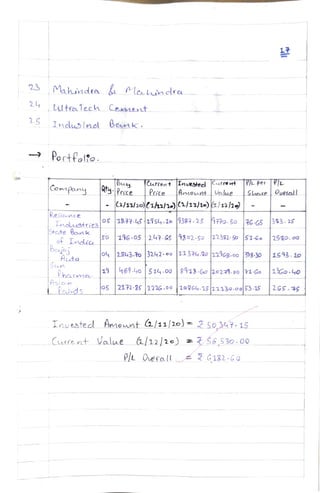 17
23 Mahindra & Mahindra
24 UltraTech Cement
25 IndusInd Bank.
→ Portfolio.
Company Qty. Buy Price Current Price Invested Amount Current Value P/L Per Share P/L Overall
- - (2/11/20) (1/12/20) (2/11/20) (1/12/20) - -
Reliance Industries 05 1877.45 1954.10 9387.25 9770.50 76.65 383.25
State Bank of India 50 196.05 247.65 9802.50 12382.50 51.60 2580.00
Bajaj Auto 04 2843.70 3242.00 11374.80 12968.00 398.30 1593.20
Sun Pharma 19 514.00
Asian Paints 05 2172.85 2226.00 10864.25 11130.00 53.15 265.75
Invested Amount (2/11/20) = ₹ 50,347.15
Current Value (1/12/20) = ₹ 56,530.00
P/L Overall = ₹ 6182.60